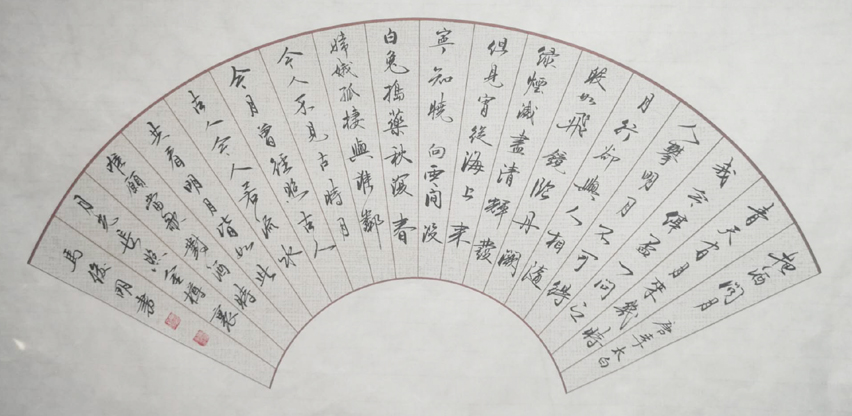 把酒問月 唐李太白
青天有月来幾時
我今停盃一问之
人攀明月不可得
月行却與人相随
皎如飛鏡臨丹阙
绿煙滅盡清輝發
但見宵從海上来
寧知曉向雲間没
白兔搗藥秋復春
嫦娥孤棲與誰鄰
今人不見古時月
今月曾經照古人
古人今人若流水
共看明月皆如此
惟願當歌對酒時
月光長照金樽裏
馬俊明書